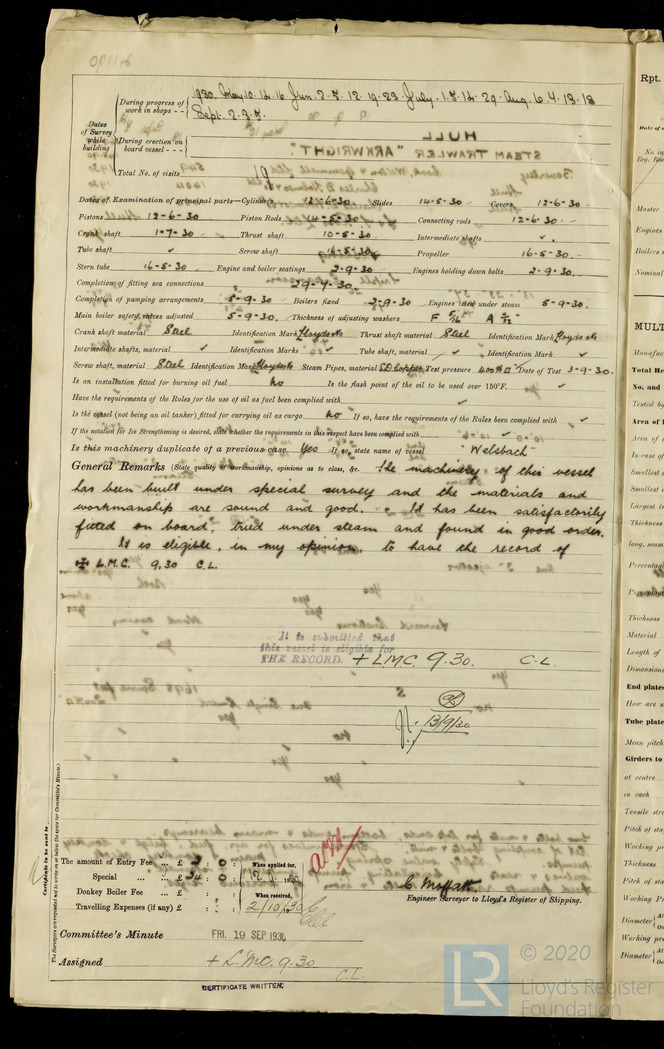 During progress of work in shops - - 1930. May 10. 14. 16. Jun. 2. 5. 12. 19. 23. July. 1. 5. 14. 29. Aug. 6. 4. 13. 18
Sept. 2. 3. 5.
Dates of Survey while building
During erection on board vessel - - -
Total No. of visits 19
Dates of Examination of principal parts—Cylinders 12-6-30 Slides 14-5-30 Covers 12-6-30
Pistons 12-6-30 Piston Rods 14-5-30 Connecting rods 12-6-30
Crank shaft 1-7-30 Thrust shaft 10-5-30 Intermediate shafts ✓
Tube shaft ✓ Screw shaft 16-5-30 Propeller 16-5-30
Stern tube 16-5-30 Engine and boiler seatings 2-9-30 Engines holding down bolts 2-9-30
Completion of fitting sea connections 29-7-30
Completion of pumping arrangements 5-9-30 Boilers fixed 2-9-30 Engines tried under steam 5-9-30
Main boiler safety valves adjusted 5-9-30 Thickness of adjusting washers F 5/16 A
Crank shaft material Steel Identification Mark Lloyds No Thrust shaft material Steel Identification Mark Lloyds No
Intermediate shafts, material ✓ Identification Marks ✓ Tube shaft, material ✓ Identification Mark ✓
Screw shaft, material Steel Identification Mark Lloyds No Steam Pipes, material S.D. Copper Test pressure 400 lb □" Date of Test 3-9-30.
Is an installation fitted for burning oil fuel No Is the flash point of the oil to be used over 150°F. ✓
Have the requirements of the Rules for the use of oil as fuel been complied with ✓
Is the vessel (not being an oil tanker) fitted for carrying oil as cargo No If so, have the requirements of the Rules been complied with ✓
If the notation for Ice Strengthening is desired, state whether the requirements in this respect have been complied with ✓
Is this machinery duplicate of a previous case Yes If so, state name of vessel "Welsbach"
General Remarks (State quality of workmanship, opinions as to class, &c. The machinery of this vessel
has been built under special survey and the materials and
workmanship are sound and good. It has been satisfactorily
fitted on board, tried under steam and found in good order.
It is eligible, in my opinion, to have the record of
✠ L.M.C. 9,30 C.L.
It is submitted that
this vessel is eligible for
THE RECORD. + LMC. 9.30. C.L.
13/9/30
Certificate to be sent to
The Surveyors are requested not to write on or below the space for Committee's Minute.
The amount of Entry Fee ... £ 3 : 0 : When applied for,
Special ... £ 34 : 0 :
Donkey Boiler Fee ... £ : : When received,
Travelling Expenses (if any) £ : : 2/10/30
C. Moffatt
Engineer Surveyor to Lloyd's Register of Shipping.
Committee's Minute FRI. 19 SEP 1930
Assigned + L.M.C. 9.30
C.L.
CERTIFICATE WRITTEN.
Rpt.
Master
Engines
Boilers
Nominal
MULT
Manufac
Total He
No. and
Tested by
Area of
Area of
In case of
Smallest
Smallest
Largest
Thickness
long. seam
Percentag
Thickness
Material
Length of
Dimensions
End plates
How are s
Tube plate
Mean pitch
Girders to
at centre
in each
Tensile stre
Pitch of sta
Working pr
Thickness
Pitch of sta
Working P
Diameter
Working pre
Diameter
© 2020
LR Lloyd's Register
Foundation